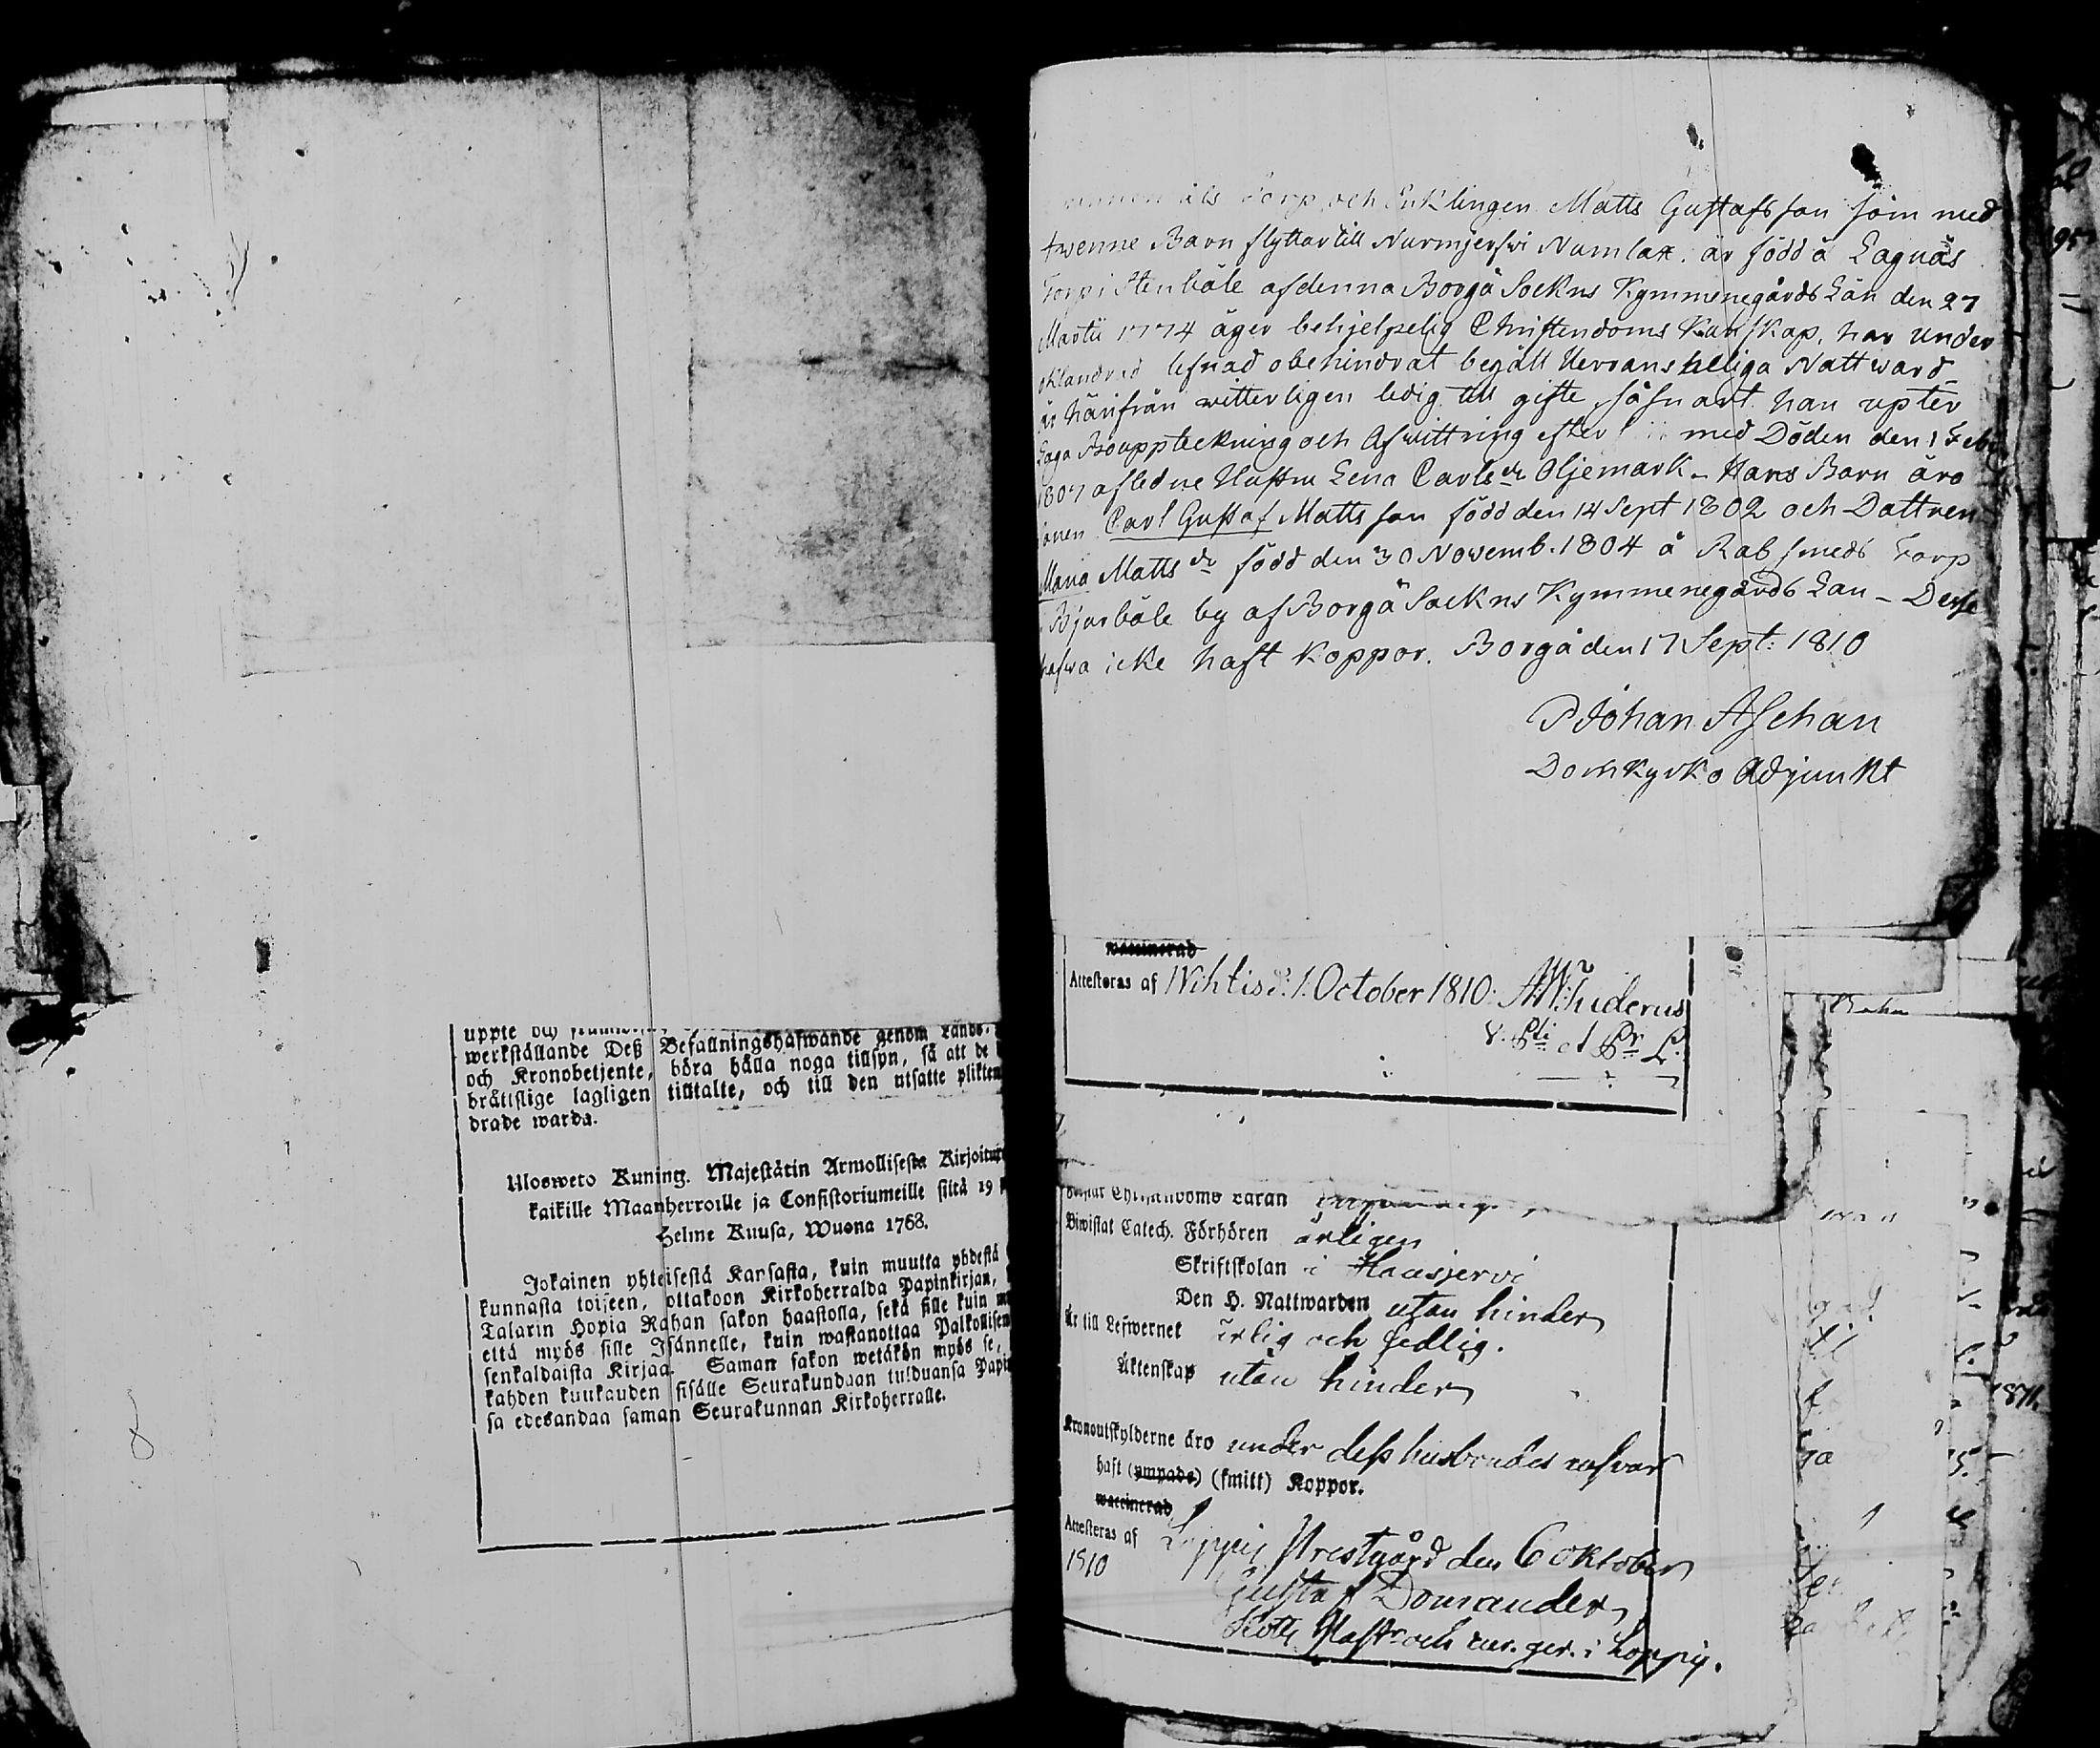 werkställande Deß Befallningshafwande genom Lands-
och Kronobetjente, böra hålla noga tillsyn, så att de
brättslige lagligen tilltalte, och till den utsatte plikten
drade warda.
Ulosweto Kuning. Majestätin Armollisesta Kirjoituxe
kaikille Maanherroille ja Consistoriumeille siitä 19
Helme Kuusa, Wuona 1768.
Jokainen yhteisestä Kansasta, kuin muutta yhdestä
kunnasta toiseen, ottakoon Kirkoherralda Papinkirjan,
Talarin Hopia Rahan sakon haastolla, sekä sille kuin
että myös sille Isännelle, kuin wastanottaa Palkollisen
senkaldaista Kirjaa. Saman sakon wetäkön myös se,
kahden kuukauden sisälle Seurakundaan tulduansa Papin
sa edesandaa saman Seurakunnan Kirkoherralle.
Torp och Enklingen Matts Gustafsson som med
twenne Barn flyttar till Nurmjerfwi Numlax. är född å Lagnäs
Torp i Stenböle af denna Borgå Sockns Kymmenegårds Län den 27
Martii 1774 äger behjelpelig Christendoms Kunskap, har under
oklandrad lefnad obehindrat begått Herrans heliga Nattward
är härifrån witterligen ledig till gifte, såsnart han upter
Laga Bouppteckning och Afwittring efter med Döden den 1 Febr
1807 afledne Hustru Lena Carlsdr Oljemark - Hans Barn äro
sonen Carl Gustaf Mattsson född den 14 Sept 1802 och Dottren
Maria Mattsdr född den 30 Novemb. 1804 å Rabsmeds Torp
Bjurböle by af Borgå Sockns Kymmenegårds Län - Desse
hafwa icke haft Koppor. Borgå den 17 Sept: 1810
P Johan Aschan
Domkyrko Adjunkt
waccinerad
Attesteras af Wihtis d. 1. October 1810.
Christendoms Läran
Biwistat Catech. Förhören årligen
Skriftskolan i Hausjerwi
Den H. Nattwarden utan hinder
Är till Lefwernet ärlig och sedlig.
Äktenskap utan hinder
Kronoutskylderne äro under dess husbondes answar
haft (ympade) (smitt) Koppor.
waccinerad
Attesteras af Loppis Prestgård den 6 oktober
1810
Gustaf Domander